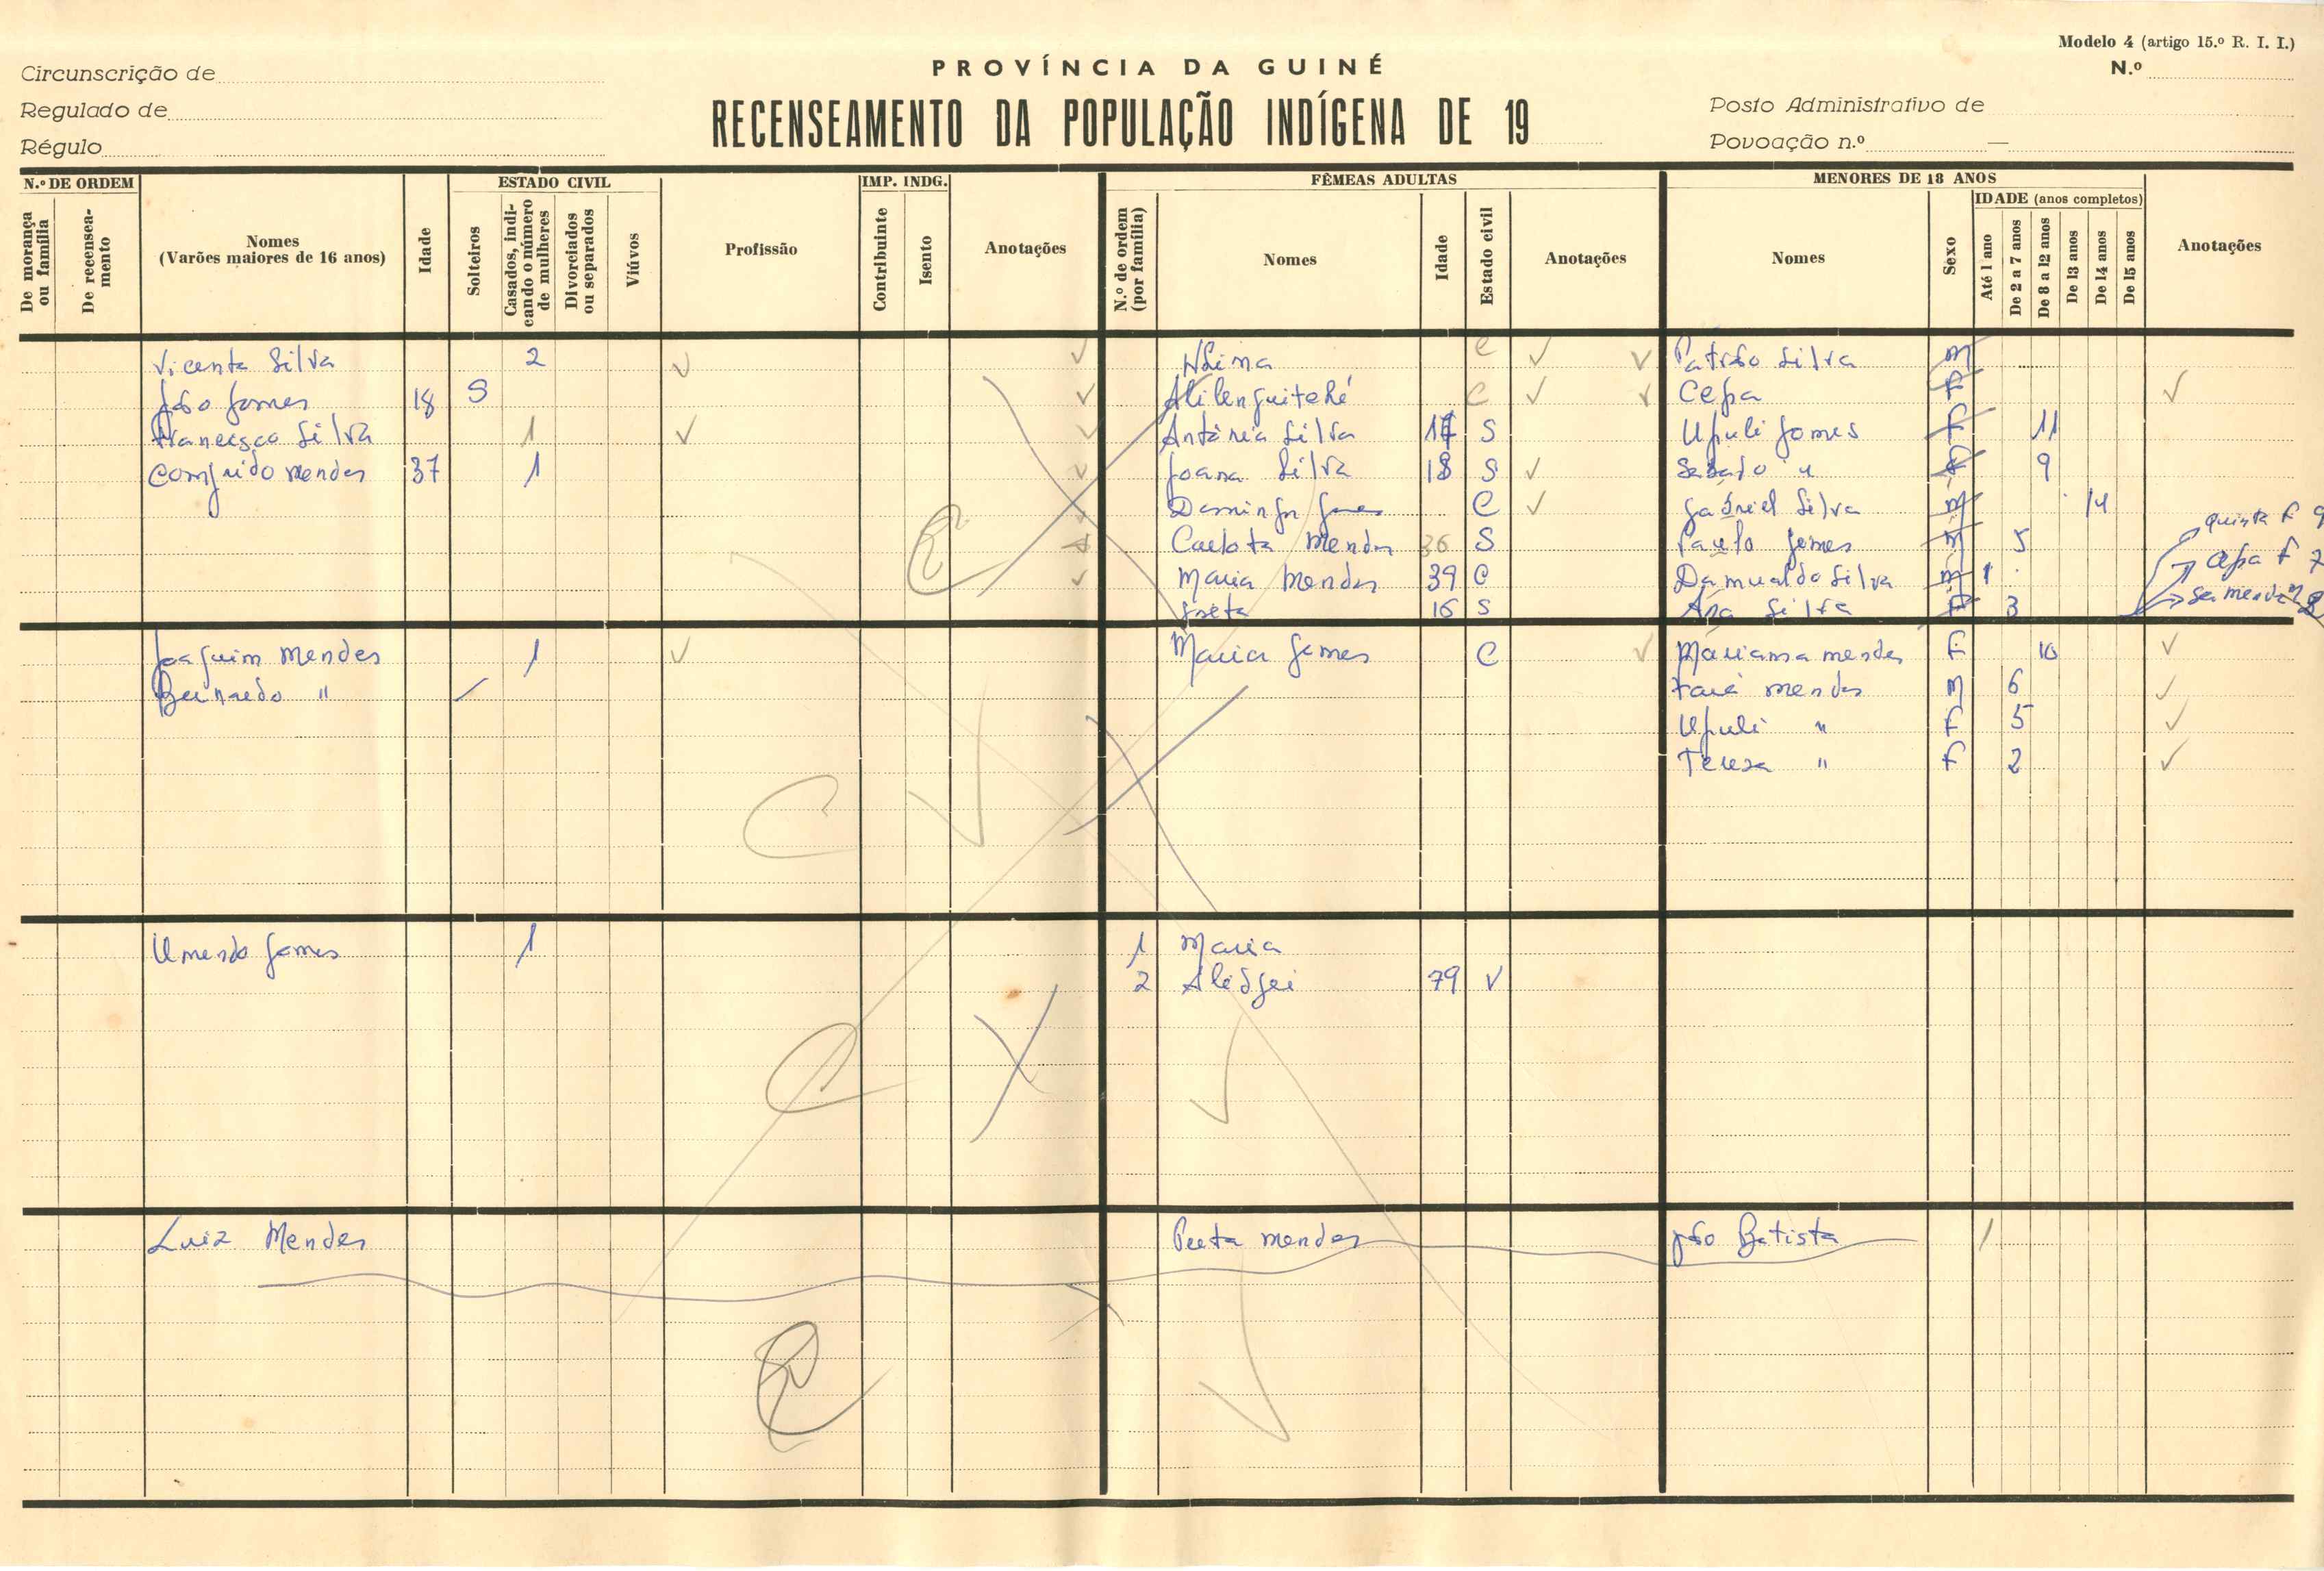 Modelo 4 (artigo 15.º R. I. I.)
PROVÍNCIA DA GUINÉ
N.º
Circunscrição de
Regulado de
Régulo
RECENSEAMENTO DA POPULAÇÃO INDÍGENA DE 19
Posto Administrativo de
Povoação n.º —
N.º DE ORDEM
De morança ou família
De recensea-mento
Nomes
(Varões maiores de 16 anos)
Idade
ESTADO CIVIL
Solteiros
Casados, indi-cando o número de mulheres
Divorciados ou separados
Viúvos
Profissão
IMP. INDG.
Contribuinte
Isento
Anotações
FÊMEAS ADULTAS
N.º de ordem (por família)
Nomes
Idade
Estado civil
Anotações
MENORES DE 18 ANOS
Nomes
Sexo
IDADE (anos completos)
Até 1 ano
De 2 a 7 anos
De 8 a 12 anos
De 13 anos
De 14 anos
De 15 anos
Anotações
Vicente Silva 2 C Silva M
João Gomes 18 S C Cepa F
Francisco Silva 1 Antónia Silva S Upuli Gomes F 11
Comprido Mendes 37 1 Joana Silva 18 S Sabado " 9
Dominga Gomes C Gabriel Silva M 14
Carlota Mendes 36 S Paulo Gomes M 5
quinta F 9
Maria Mendes 39 C Damualdo Silva M 1
F 7
16 S Ana Silva F 3
Joaquim Mendes 1 Maria Gomes C Mariama Mendes F 10
Bernardo " Mendes M 6
Upuli " F 5
Teresa " F 2
Gomes 1 1 Maria
2 79 V
Luiz Mendes Mendes João Batista